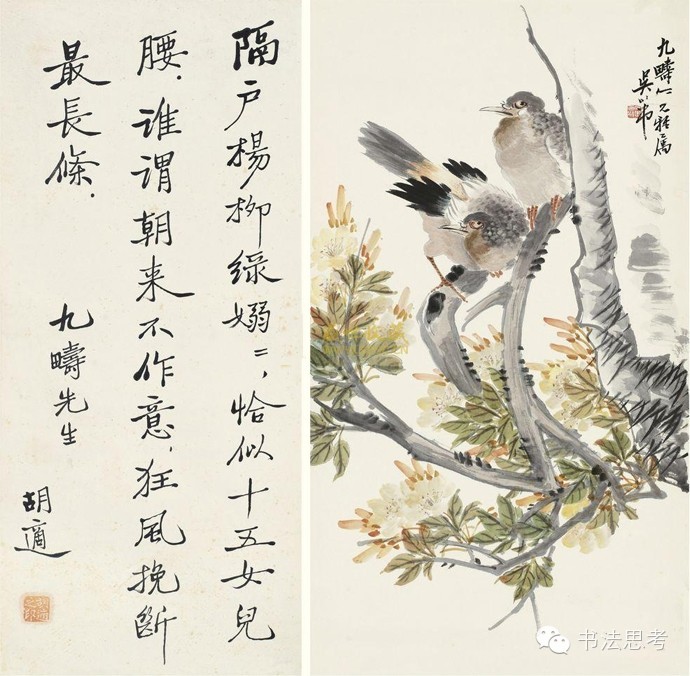 隔户楊柳綠嫋〻，恰似十五女兒
腰．谁谓朝来不作意，狂風挽斷
最長條．
九疇先生
胡適
九疇仁兄雅属
吳
书法思考